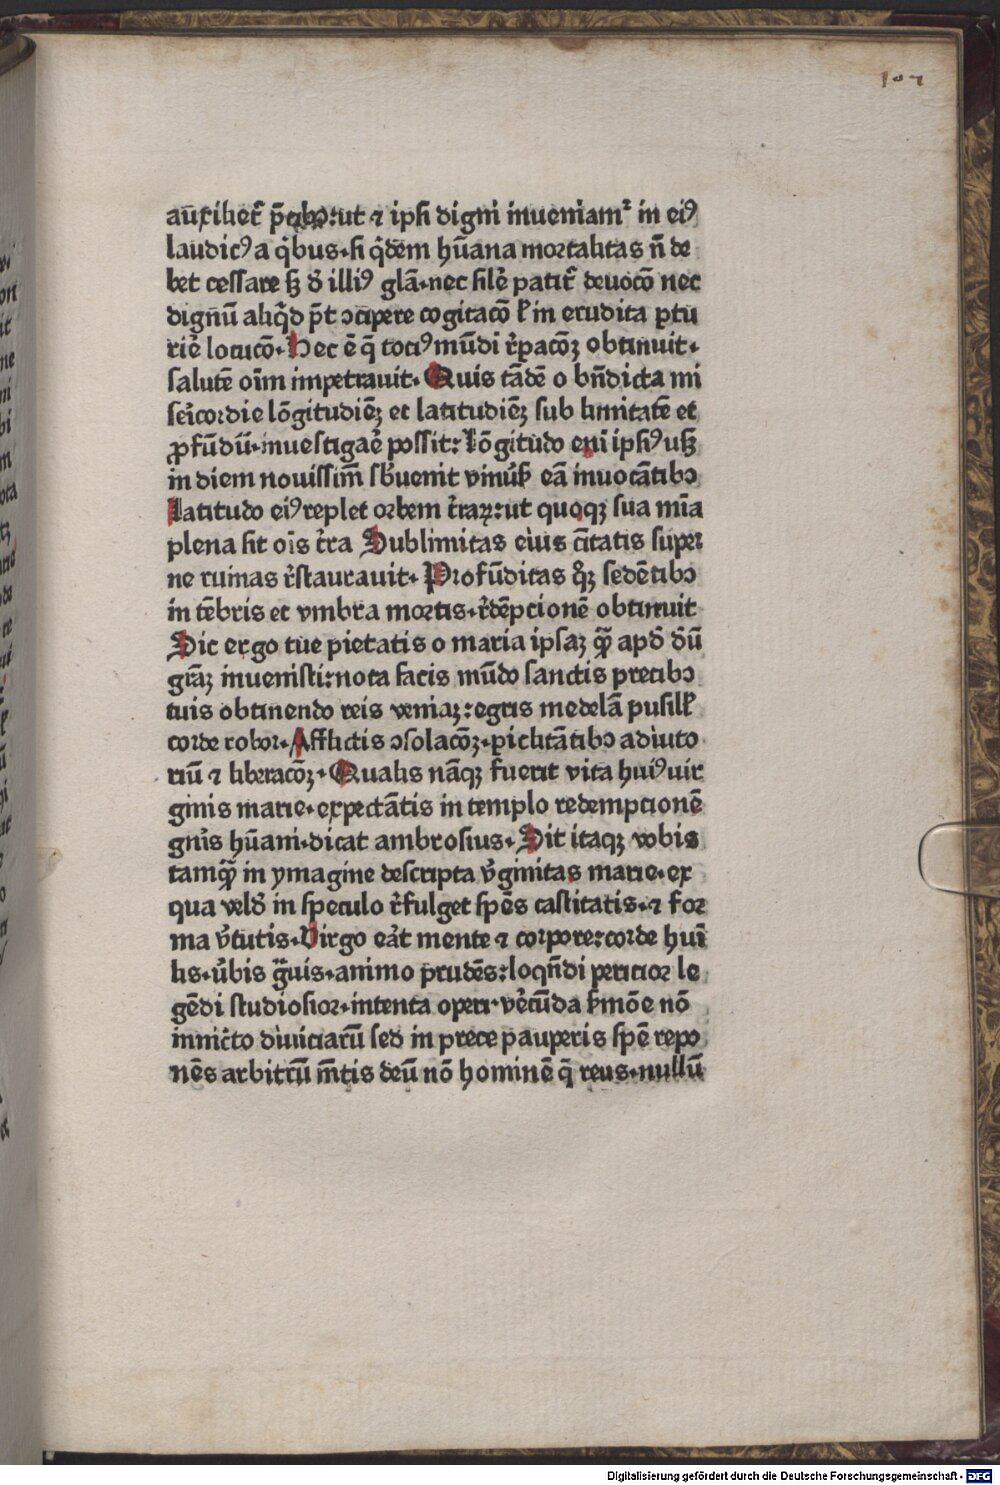 107
auxiliet᷑ p̄cibꝰ:ut ⁊ ipsi digni inueniamᷣ in eiꝰ
laudicꝰ a q̇bus·si q̇dem hūana mortalitas n̄ de
bet cessare sꝫ d᷑ illiꝰ glā·nec silēr patit᷑ deuocō nec
dignū aliq̇d p̄t ↄcipere cogitacō ł in erudita ꝑtu
rire locucō· Hec ē q̄ tociꝰ mūdi r̓ꝑacōꝫ obtinuit·
salutē oīm impetrauit· Quis tādē o bn̄dicta mi
sericordie lōgitudiēꝫ et latitudiēꝫ sub limitatē et
ꝓfūdū·inuestigare possit: Lōgitudo eni ipsiꝰ usꝫ
in diem nouissim̄ sb̓uenit vniu᷑s eā inuocātibꝰ
Latitudo eiꝰ replet orbem t̓raꝝ:ut quoqꝫ sua mīa
plena sit oīs t̓ra Sublimitas eius c̄itatis super
ne ruinas r̓staurauit· Profūditas q̊ꝫ sedētibꝰ
in tēbris et vmbra mortis·r̓dēpcionē obtinuit
Sic ergo tue pietatis o maria ipsaꝫ q̄ꝫ apd̓ d̄ū
gr̄aꝫ inuenisti:nota facis mūdo sanctis precibꝰ
tuis obtinendo reis veniaꝫ:egris medelā pusilł
corde robor· Afflictis ↄsolacōꝫ·ꝑiclitātibꝰ adiuto
riū ⁊ liberacōꝫ· Qualis nāqꝫ fuerit vita huiꝰ uir
ginis marie·expectātis in templo redempcionē
gn̓is hūani·dicat ambrosius· Sit itaqꝫ vobis
tamq̄ꝫ in ymagine descripta v̓ginitas marie·ex
qua velud̓ in speculo r̓fulget spēs castitatis·⁊ for
ma v̓tutis· Virgo eāt mente ⁊ corpore:corde huī
lis·u̓bis ḡuis·animo prudēs:loqn̄di pericior le
gēdi studiosior·intenta operi·ve᷑cūda s̓mōe nō
in inic̓to diuiciarū sed in prece pauperis spē repo
nēs arbitrū m̄tis deū nō hominē q̄ reus·nullū
Digitalisierung gefördert durch die Deutsche Forschungsgemeinschaft - DFG